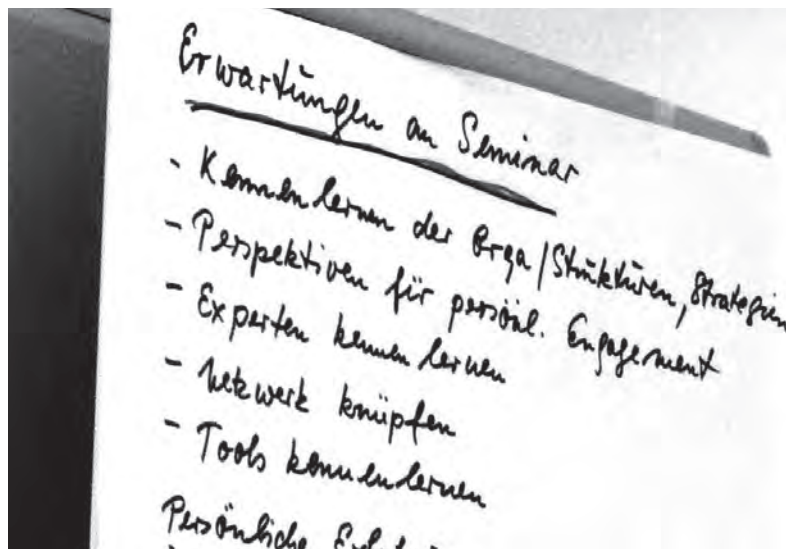 Erwartungen an Seminar
- Kennenlernen der Orga/Strukturen, Strategien
- Perspektiven für persönl. Engagement
- Experten kennen lernen
- Netzwerk knüpfen
- Tools kennenlernen
Persönliche